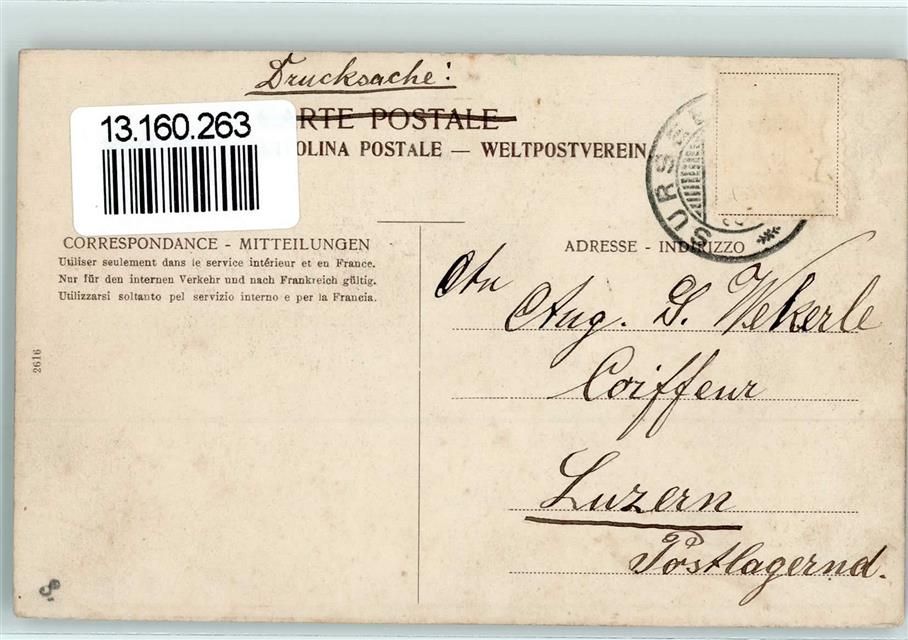 Drucksache:
13.160.263
RTE POSTALE
OLINA POSTALE — WELTPOSTVEREIN
SURSEE
CORRESPONDANCE - MITTEILUNGEN
Utiliser seulement dans le service intérieur et en France.
Nur für den internen Verkehr und nach Frankreich gültig.
Utilizzarsi soltanto pel servizio interno e per la Francia.
ADRESSE - INDIRIZZO
An
Aug. G. Wekerle
Coiffeur
Luzern
Postlagernd.
2616